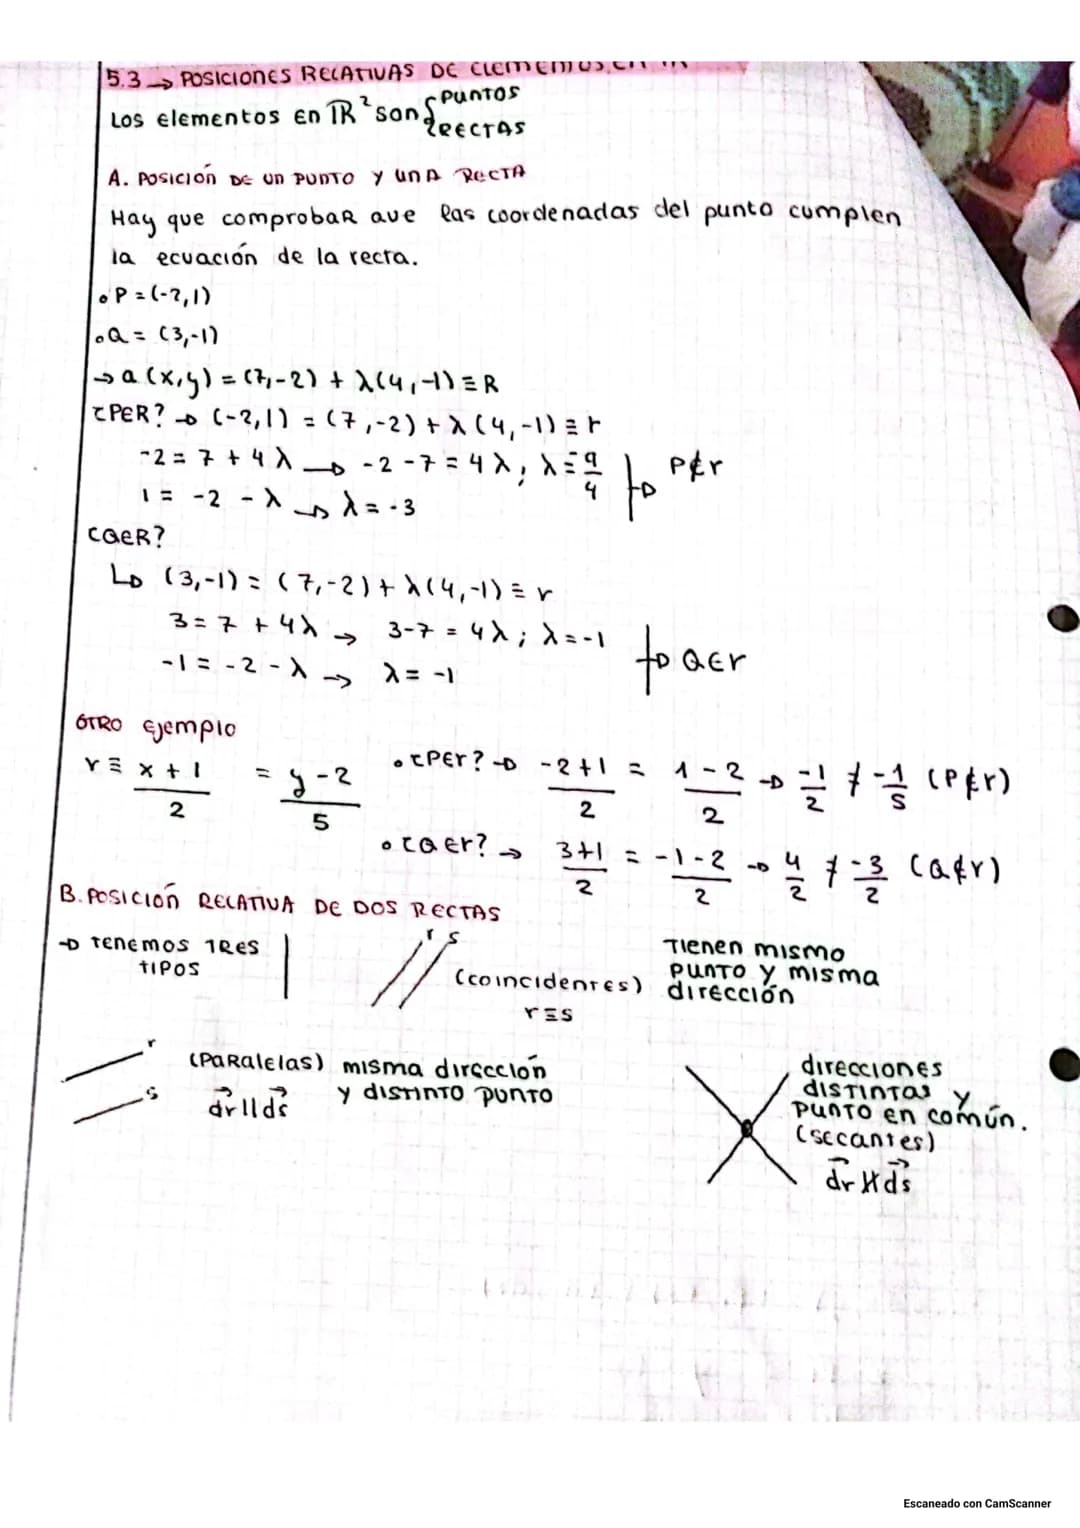 5.3 → POSICIONES RELATIVAS DE ELEMENTOS EN
Los elementos en ℝ² son { PUNTOS
RECTAS
A. POSICIÓN DE UN PUNTO Y UNA RECTA
Hay que comprobar que las coordenadas del punto cumplen
la ecuación de la recta.
• P = (-2,1)
• Q = (3,-1)
→ a (x,y) = (7,-2) + λ(4,-1) ≡ R
¿PER? → (-2,1) = (7,-2) + λ(4,-1) ≡ r
-2 = 7 + 4λ → -2 -7 = 4λ; λ = -9/4 → P∉r
1 = -2 - λ → λ = -3
¿QER?
↳ (3,-1) = (7,-2) + λ(4,-1) ≡ r
3 = 7 + 4λ → 3-7 = 4λ; λ = -1 → Q∈r
-1 = -2 - λ → λ = -1
OTRO Ejemplo
r ≡ x + 1 / 2 = y - 2 / 5
• ¿PEr? → -2+1 / 2 = 1-2 / 2 → -1/2 ≠ -1/5 (P∉r)
• ¿QEr? → 3+1 / 2 = -1-2 / 2 → 4/2 ≠ -3/2 (Q∉r)
B. POSICIÓN RELATIVA DE DOS RECTAS
→ TENEMOS TRES
TIPOS
r s
(coincidentes)
r≡s
Tienen mismo
punto y misma
dirección
r
s
(Paralelas) misma dirección
y distinto punto
dr || ds
direcciones
distintas y
punto en común.
(secantes)
dr ∦ ds
Escaneado con CamScanner